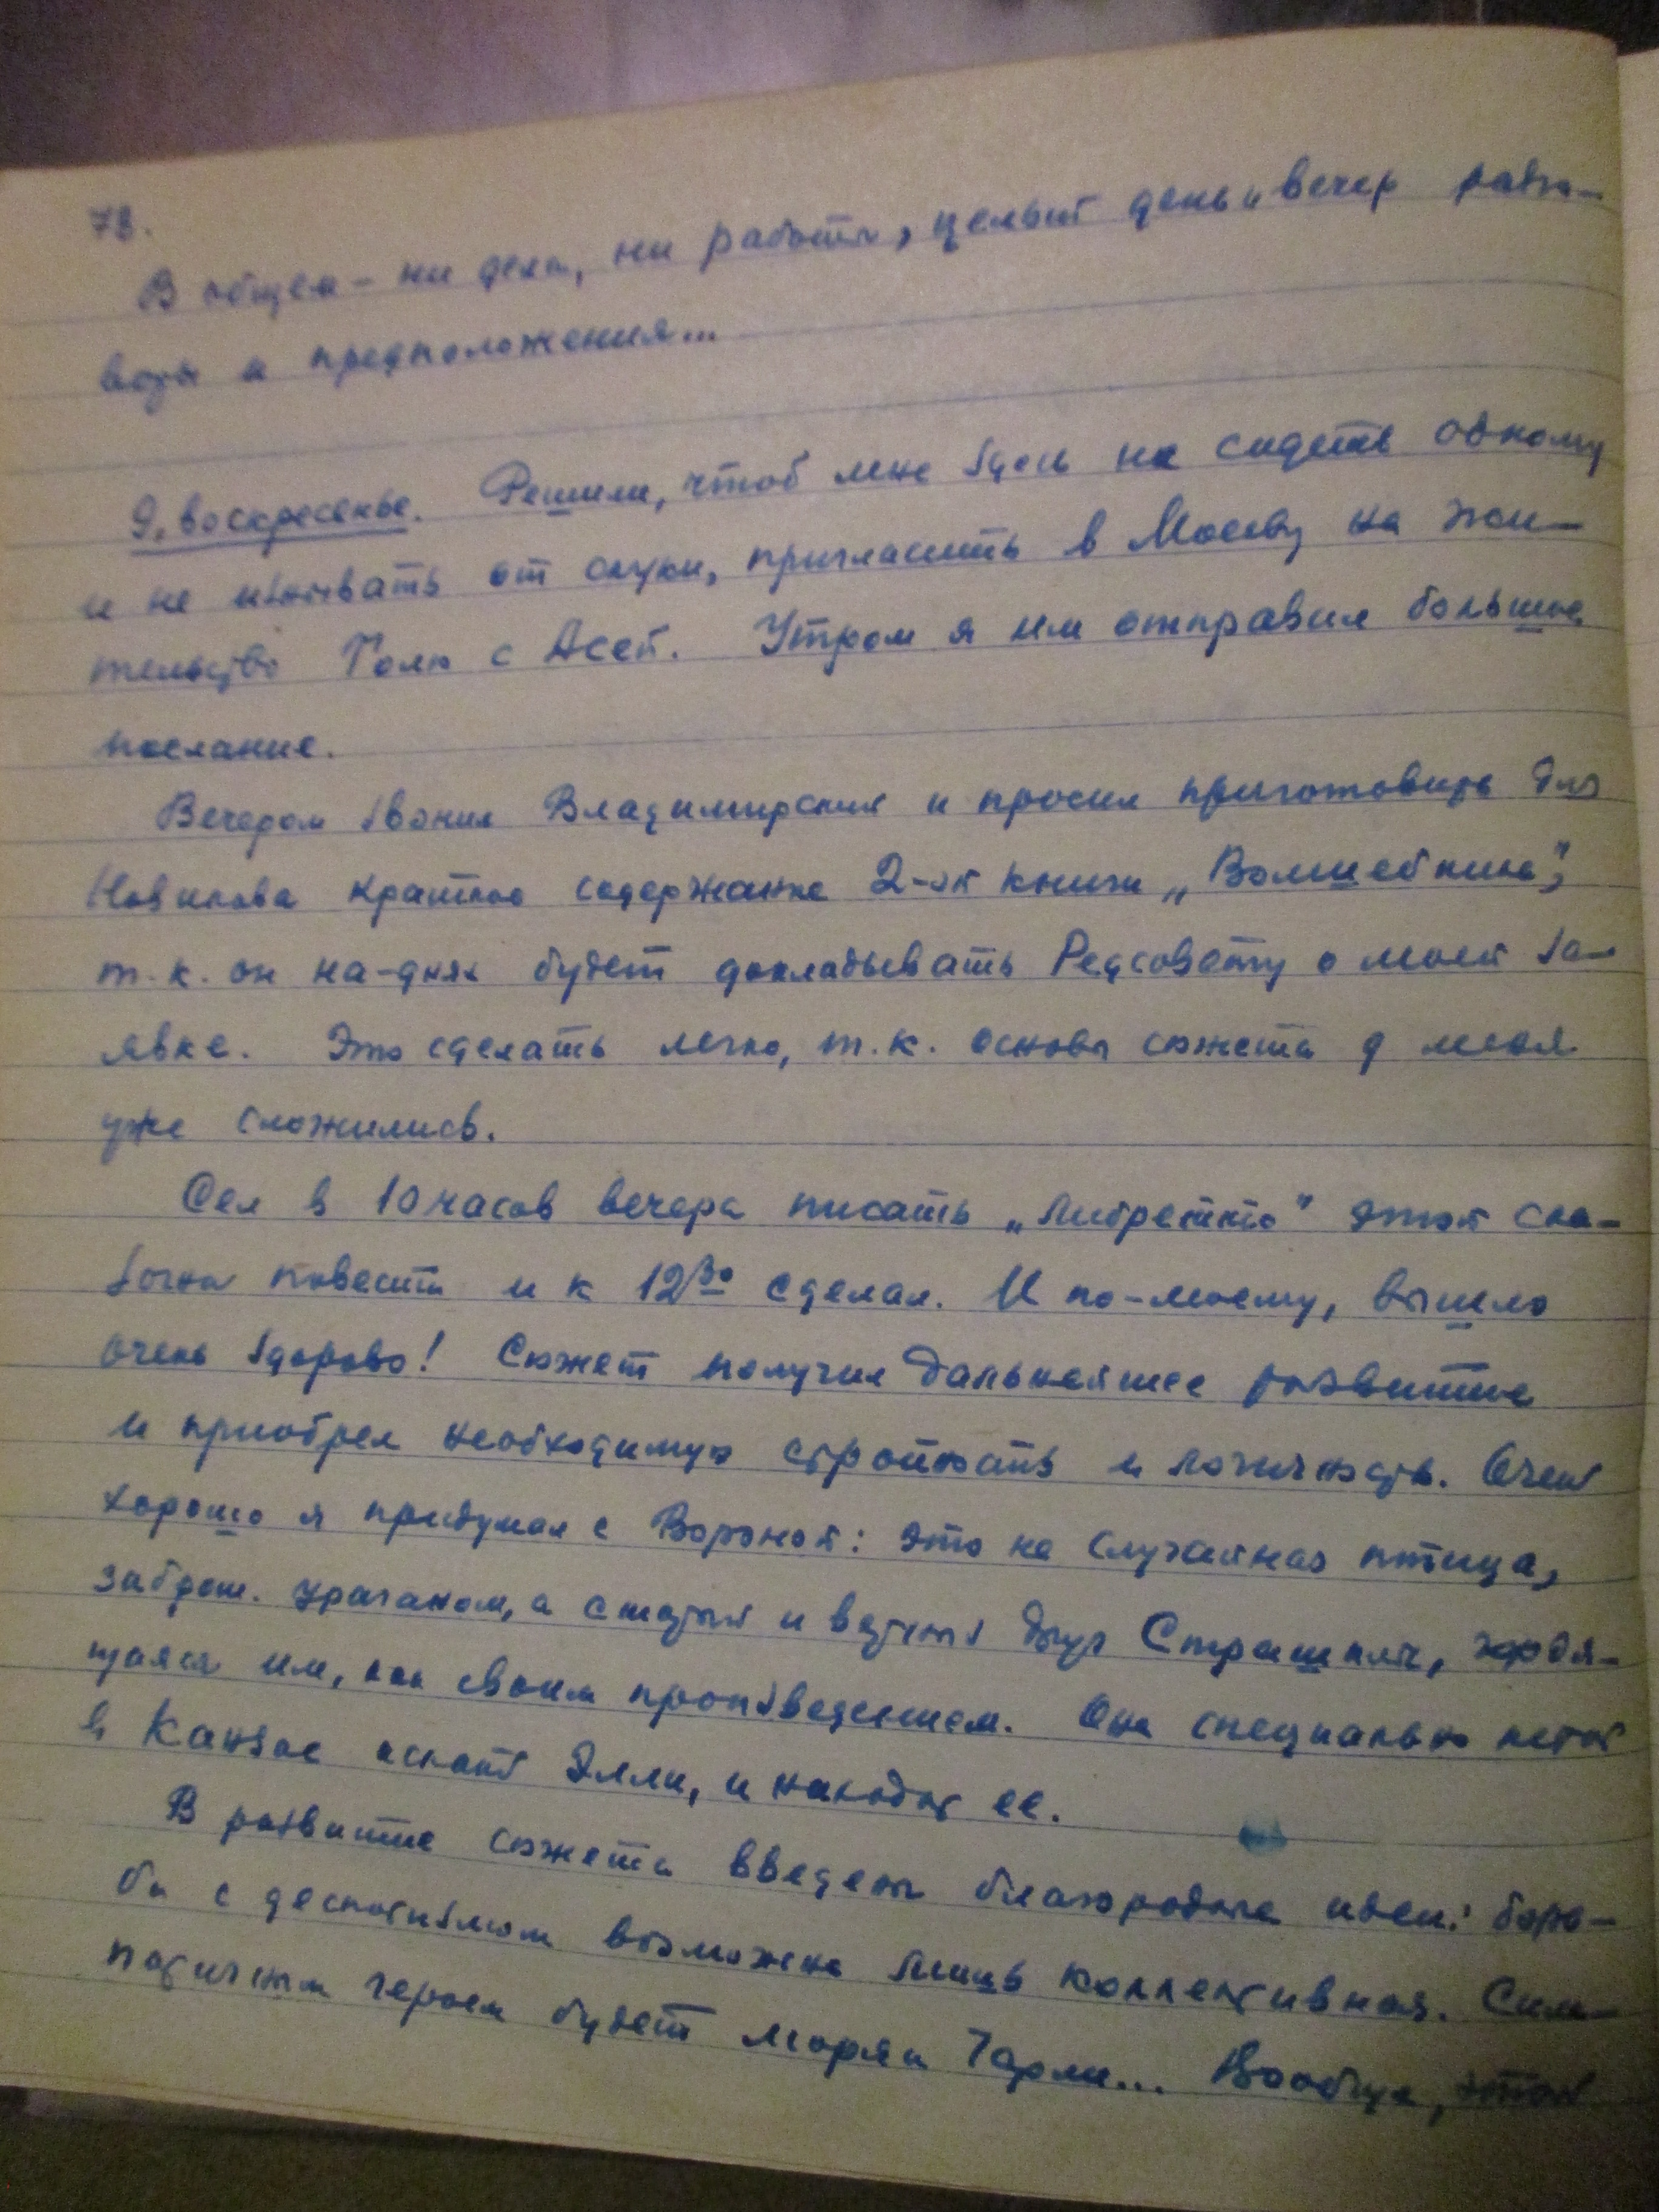 78.
В общем – ни дела, ни работы, целый день и вечер разго-
воры и предположения...
9, воскресенье. Решили, чтоб мне здесь не сидеть одному
и не изнывать от скуки, пригласить в Москву на жи-
тельство Галю с Асей. Утром я им отправил большое
послание.
Вечером звонил Владимирский и просил приготовить для
Новикова краткое содержание 2-ой книги „Волшебника",
т.к. он на-днях будет докладывать Редсовету о моей за-
явке. Это сделать легко, т.к. основы сюжета у меня
уже сложились.
Сел в 10 часов вечера писать „либретто" этой ска-
зочной повести и к 12³⁰ сделал. И по-моему, вышло
очень здорово! Сюжет получил дальнейшее развитие
и приобрел необходимую стройность и логичность. Очень
хорошо я придумал с Вороной: это не случайная птица,
заброш. ураганом, а старый и верный друг Страшилы, гордя-
щаяся им, как своим произведением. Она специально летит
в Канзас искать Элли, и находит ее.
В развитие сюжета введены благородные идеи: борь-
ба с деспотизмом возможна лишь коллективная. Сим-
патичным героем будет моряк Чарли... Вообще, этой